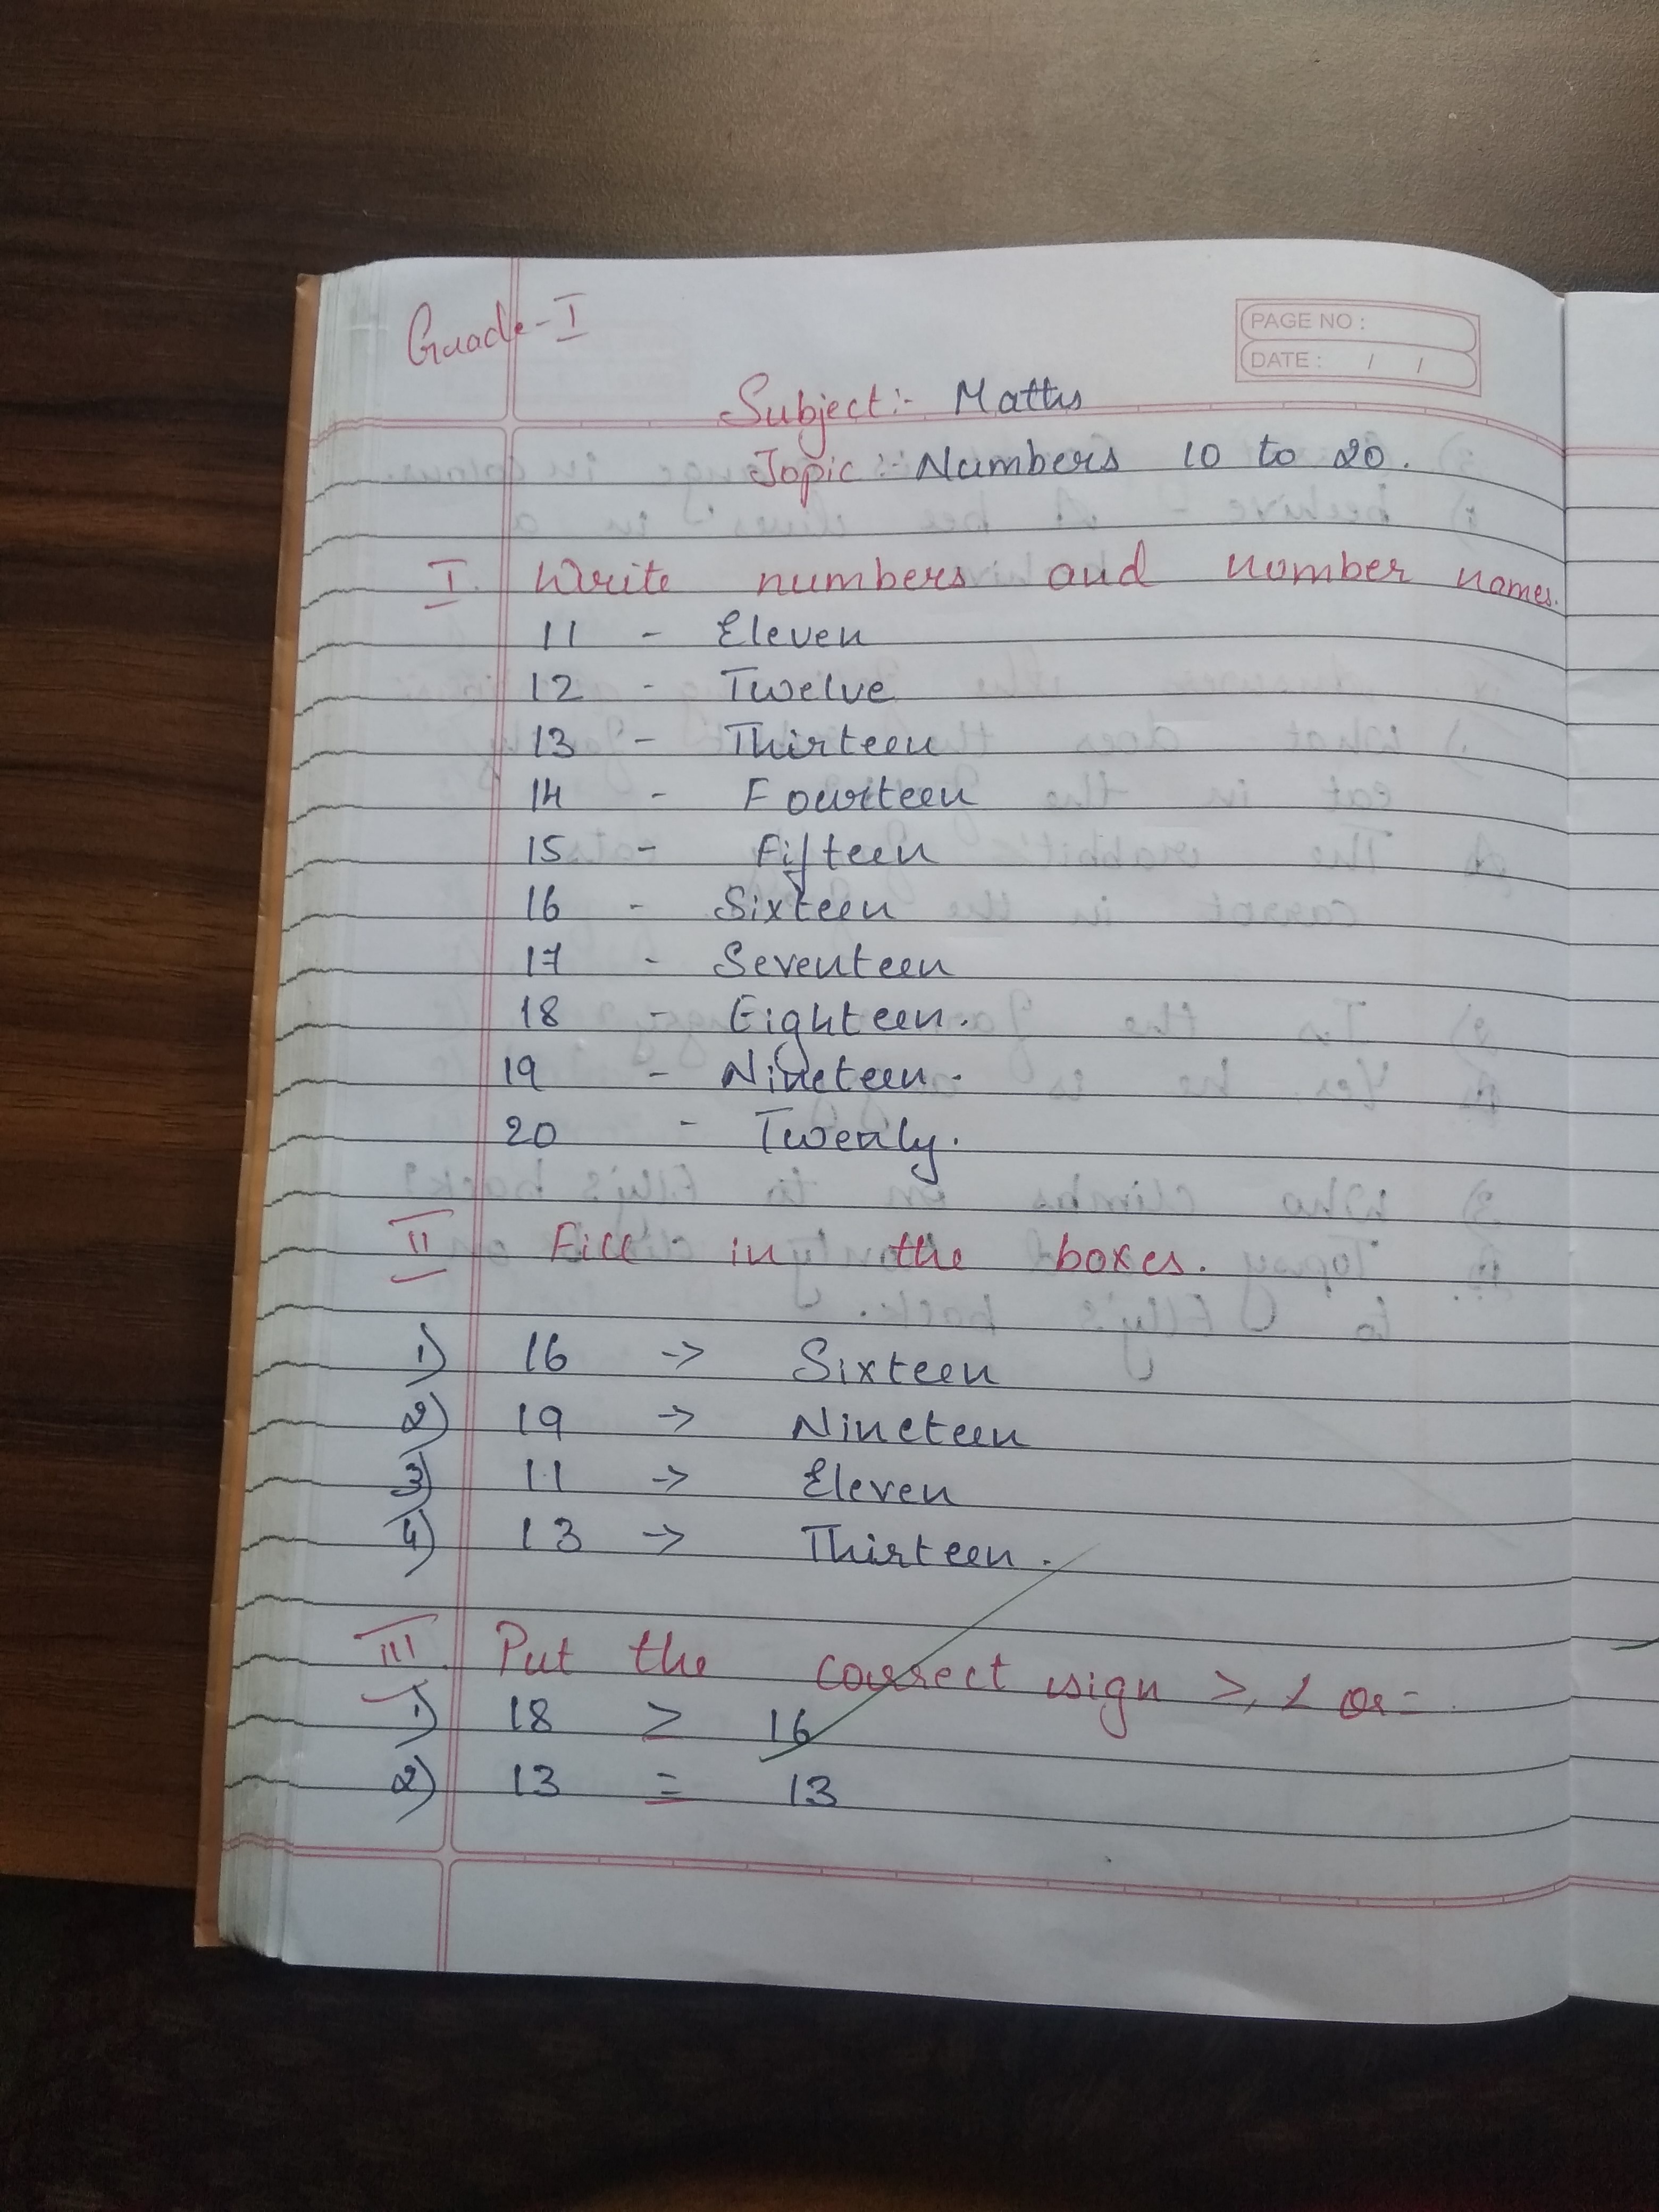 Grade-I
PAGE NO :
DATE : / /
Subject:- Maths
Topic:- Numbers 10 to 20.
I. Write numbers and number names.
11 - Eleven
12 - Twelve
13 - Thirteen
14 - Fourteen
15 - Fifteen
16 - Sixteen
17 - Seventeen
18 - Eighteen.
19 - Nineteen.
20 - Twenty.
II Fill in the boxes.
1) 16 -> Sixteen
2) 19 -> Nineteen
3) 11 -> Eleven
4) 13 -> Thirteen.
III. Put the correct sign >, < or =.
1) 18 > 16
2) 13 = 13